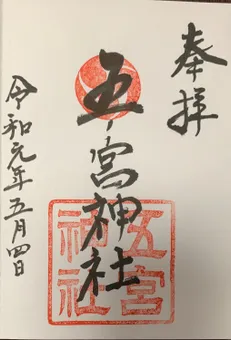 奉拝
五宮神社
令和元年五月四日
五宮
神社